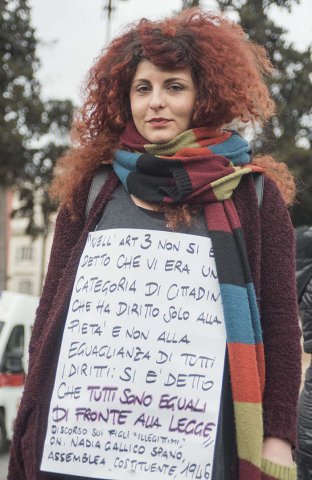 "NELL'ART 3 NON SI È
DETTO CHE VI ERA UNA
CATEGORIA DI CITTADIN
CHE HA DIRITTO SOLO ALLA
PIETÀ E NON ALLA
EGUAGLIANZA DI TUTTI
I DIRITTI: SI È DETTO
CHE TUTTI SONO EGUALI
DI FRONTE ALLA LEGGE"
DISCORSO SUI FIGLI "ILLEGITTIMI",
ON. NADIA GALLICO SPANO,
ASSEMBLEA COSTITUENTE, 1946